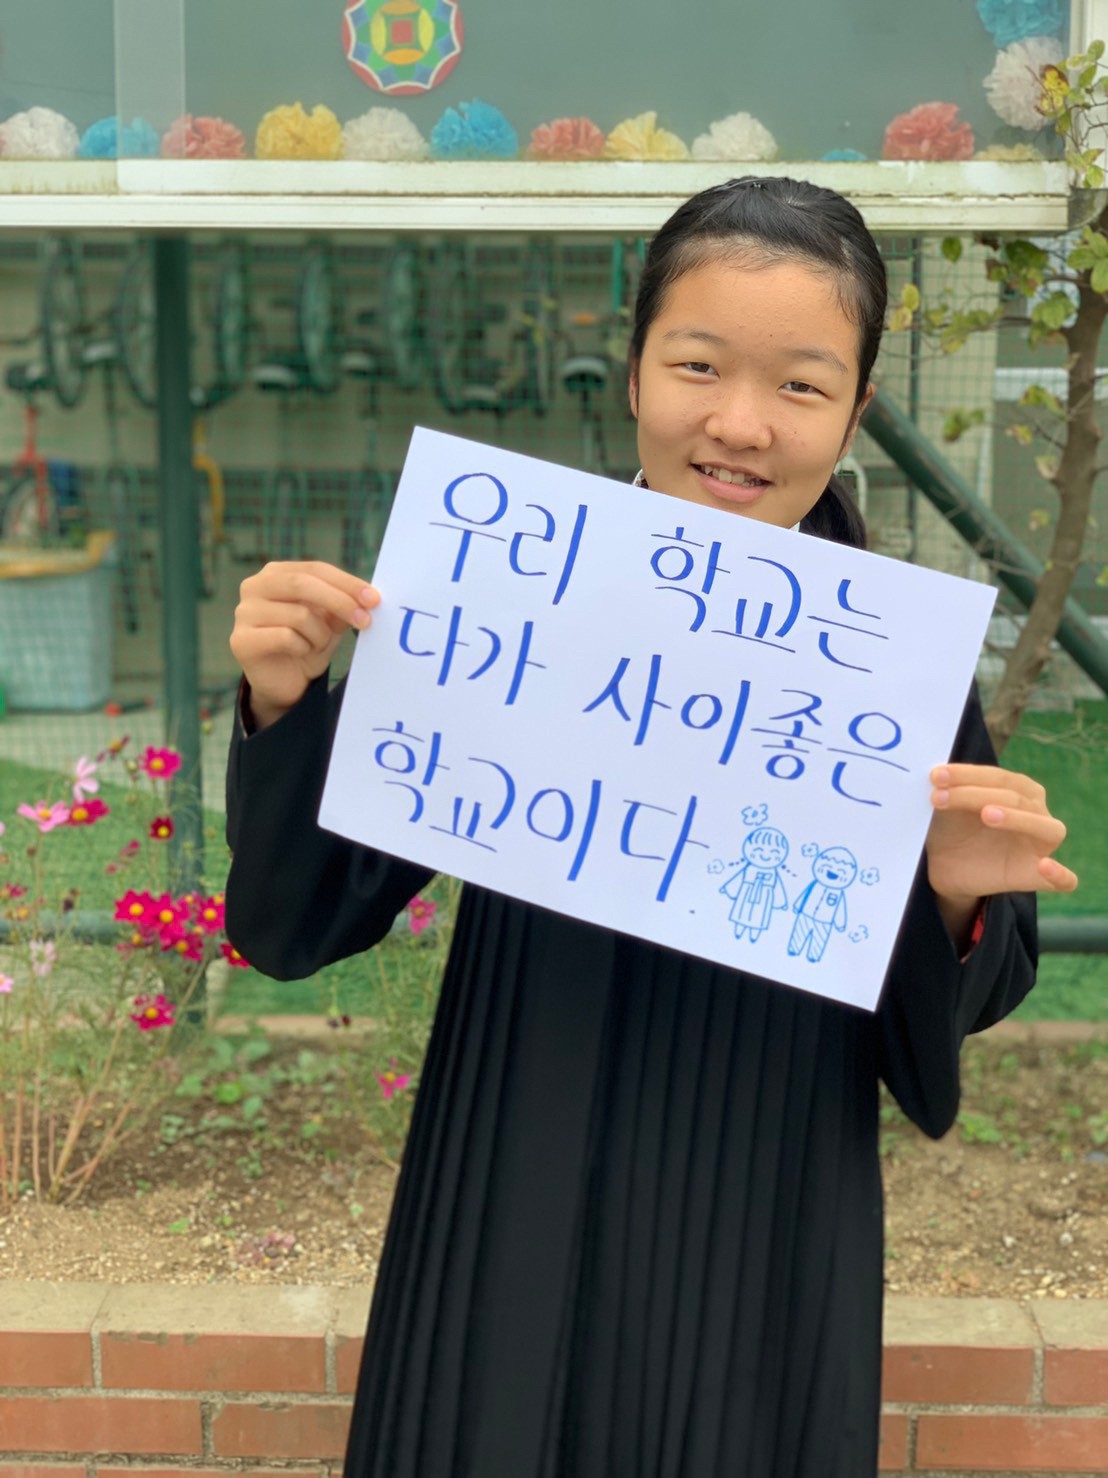 우리 학교는
다가 사이좋은
학교이다.